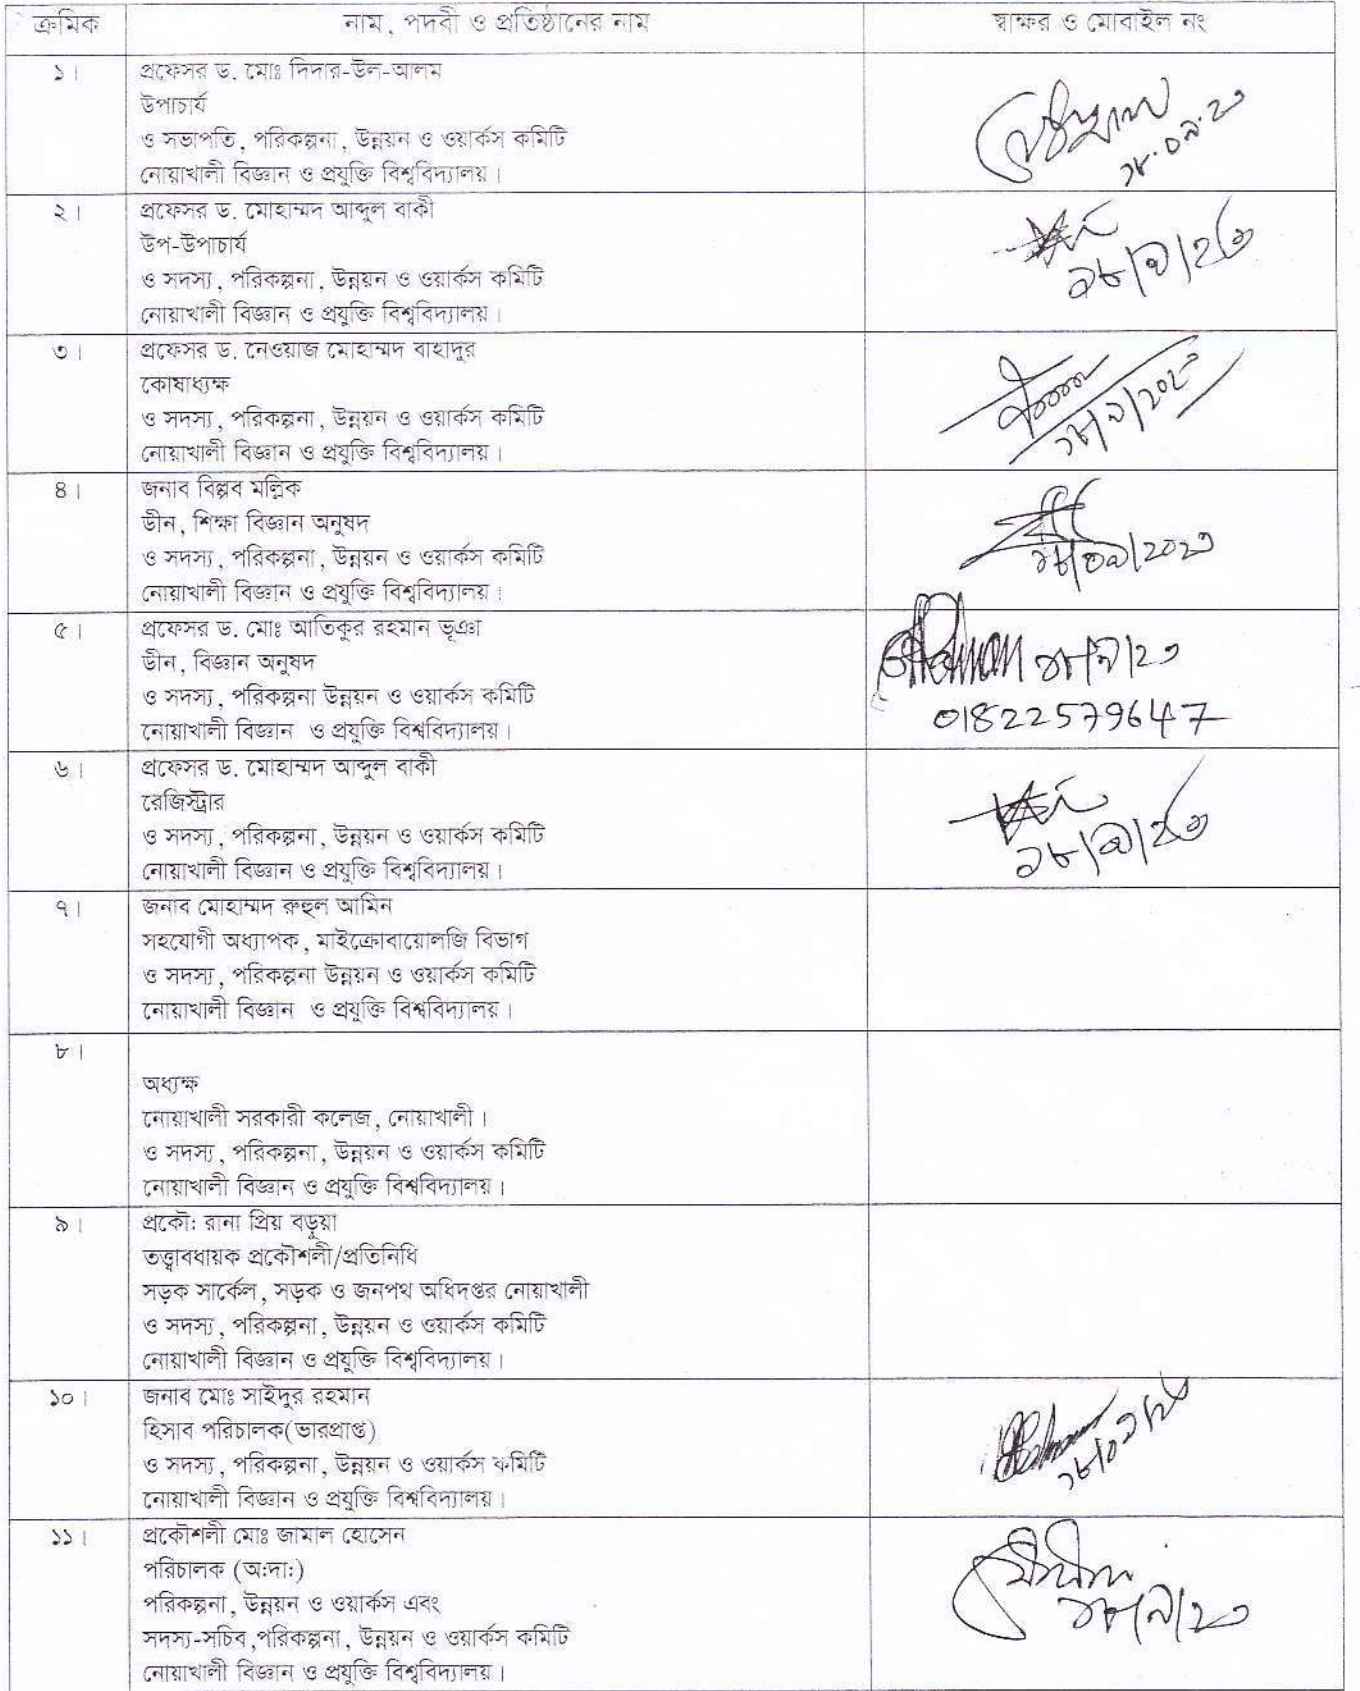 ক্রমিক নাম, পদবী ও প্রতিষ্ঠানের নাম স্বাক্ষর ও মোবাইল নং
১। প্রফেসর ড. মোঃ দিদার-উল-আলম
উপাচার্য
ও সভাপতি, পরিকল্পনা, উন্নয়ন ও ওয়ার্কস কমিটি
নোয়াখালী বিজ্ঞান ও প্রযুক্তি বিশ্ববিদ্যালয়।
২। প্রফেসর ড. মোহাম্মদ আব্দুল বাকী
উপ-উপাচার্য
ও সদস্য, পরিকল্পনা, উন্নয়ন ও ওয়ার্কস কমিটি
নোয়াখালী বিজ্ঞান ও প্রযুক্তি বিশ্ববিদ্যালয়।
৩। প্রফেসর ড. নেওয়াজ মোহাম্মদ বাহাদুর
কোষাধ্যক্ষ
ও সদস্য, পরিকল্পনা, উন্নয়ন ও ওয়ার্কস কমিটি
নোয়াখালী বিজ্ঞান ও প্রযুক্তি বিশ্ববিদ্যালয়।
৪। জনাব বিপ্লব মল্লিক
ডীন, শিক্ষা বিজ্ঞান অনুষদ
ও সদস্য, পরিকল্পনা, উন্নয়ন ও ওয়ার্কস কমিটি
নোয়াখালী বিজ্ঞান ও প্রযুক্তি বিশ্ববিদ্যালয়।
৫। প্রফেসর ড. মোঃ আতিকুর রহমান ভূঞা
ডীন, বিজ্ঞান অনুষদ
ও সদস্য, পরিকল্পনা উন্নয়ন ও ওয়ার্কস কমিটি
নোয়াখালী বিজ্ঞান ও প্রযুক্তি বিশ্ববিদ্যালয়।
01822579647
৬। প্রফেসর ড. মোহাম্মদ আব্দুল বাকী
রেজিস্ট্রার
ও সদস্য, পরিকল্পনা, উন্নয়ন ও ওয়ার্কস কমিটি
নোয়াখালী বিজ্ঞান ও প্রযুক্তি বিশ্ববিদ্যালয়।
৭। জনাব মোহাম্মদ রুহুল আমিন
সহযোগী অধ্যাপক, মাইক্রোবায়োলজি বিভাগ
ও সদস্য, পরিকল্পনা উন্নয়ন ও ওয়ার্কস কমিটি
নোয়াখালী বিজ্ঞান ও প্রযুক্তি বিশ্ববিদ্যালয়।
৮।
অধ্যক্ষ
নোয়াখালী সরকারী কলেজ, নোয়াখালী।
ও সদস্য, পরিকল্পনা, উন্নয়ন ও ওয়ার্কস কমিটি
নোয়াখালী বিজ্ঞান ও প্রযুক্তি বিশ্ববিদ্যালয়।
৯। প্রকৌ: রানা প্রিয় বড়ুয়া
তত্ত্বাবধায়ক প্রকৌশলী/প্রতিনিধি
সড়ক সার্কেল, সড়ক ও জনপথ অধিদপ্তর নোয়াখালী
ও সদস্য, পরিকল্পনা, উন্নয়ন ও ওয়ার্কস কমিটি
নোয়াখালী বিজ্ঞান ও প্রযুক্তি বিশ্ববিদ্যালয়।
১০। জনাব মোঃ সাইদুর রহমান
হিসাব পরিচালক(ভারপ্রাপ্ত)
ও সদস্য, পরিকল্পনা, উন্নয়ন ও ওয়ার্কস কমিটি
নোয়াখালী বিজ্ঞান ও প্রযুক্তি বিশ্ববিদ্যালয়।
১১। প্রকৌশলী মোঃ জামাল হোসেন
পরিচালক (অ:দা:)
পরিকল্পনা, উন্নয়ন ও ওয়ার্কস এবং
সদস্য-সচিব,পরিকল্পনা, উন্নয়ন ও ওয়ার্কস কমিটি
নোয়াখালী বিজ্ঞান ও প্রযুক্তি বিশ্ববিদ্যালয়।